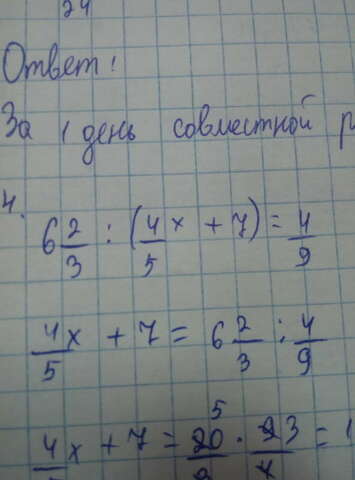 24
Ответ!
За 1 день совместной
4.
6 2/3 : (4/5 x + 7) = 4/9
4/5 x + 7 = 6 2/3 : 4/9
4/5 x + 7 = 20 5 · 9 3 / 4 =